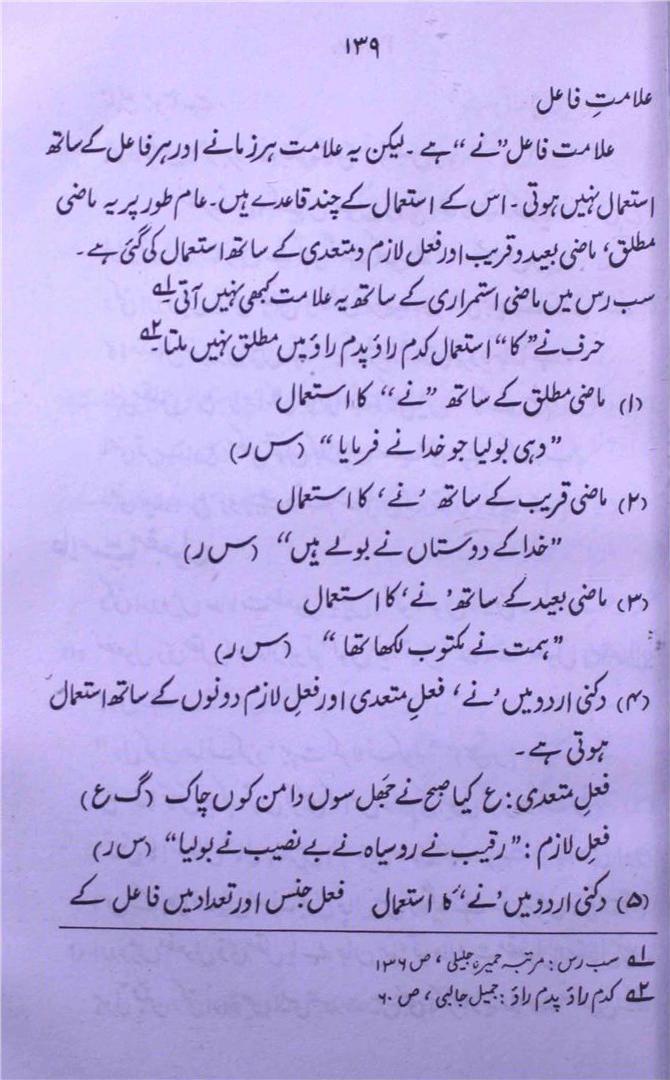 ۱۳۹
علامتِ فاعل
علامت فاعل ”نے“ ہے ۔ لیکن یہ علامت ہر زمانے اور ہر فاعل کے ساتھ
استعمال نہیں ہوتی ۔ اس کے استعمال کے چند قاعدے ہیں ۔ عام طور پر یہ ماضی
مطلق ، ماضی بعید و قریب اور فعل لازم و متعدی کے ساتھ استعمال کی گئی ہے ۔
سب رس میں ماضی استمراری کے ساتھ یہ علامت کبھی نہیں آتی ۔ ؂۱
حرف نے ”کا“ استعمال کدم راؤ پدم راؤ میں مطلق نہیں ملتا ؂۲
(۱) ماضی مطلق کے ساتھ ”نے“ کا استعمال
”وہی بولیا جو خدا نے فرمایا“ (س ر)
(۲) ماضی قریب کے ساتھ ’نے‘ کا استعمال
”خدا کے دوستاں نے بولے ہیں“ (س ر)
(۳) ماضی بعید کے ساتھ ’نے‘ کا استعمال
”ہمت نے مکتوب لکھا تھا“ (س ر)
(۴) دکنی اردو میں ’نے‘ فعلِ متعدی اور فعلِ لازم دونوں کے ساتھ استعمال
ہوتی ہے ۔
فعلِ متعدی : ع کیا صبح نے جھل سوں دامن کوں چاک (گ ع)
فعلِ لازم : ”رقیب نے روسیاہ نے بے نصیب نے بولیا“ (س ر)
(۵) دکنی اردو میں ’نے‘ کا استعمال فعل جنس اور تعداد میں فاعل کے
؂۱ سب رس : مرتبہ حمیرہ جلیلی ، ص ۱۳۶
؂۲ کدم راؤ پدم راؤ : جمیل جالبی ، ص ۶۰